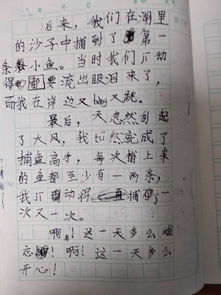 后来，我们在湖里
的沙子中捕到了第一
条小鱼。当时我们激动
得要流出眼泪来了，
而我在岸边又bèng又跳。
最后，天忽然刮起
了大风，我居然就成了
捕鱼高手，每次捕上来
的鱼都至少有一两条，
我激动得捕了一
次又一次。
啊！这一天多么难
忘啊！这一天多么
开心！